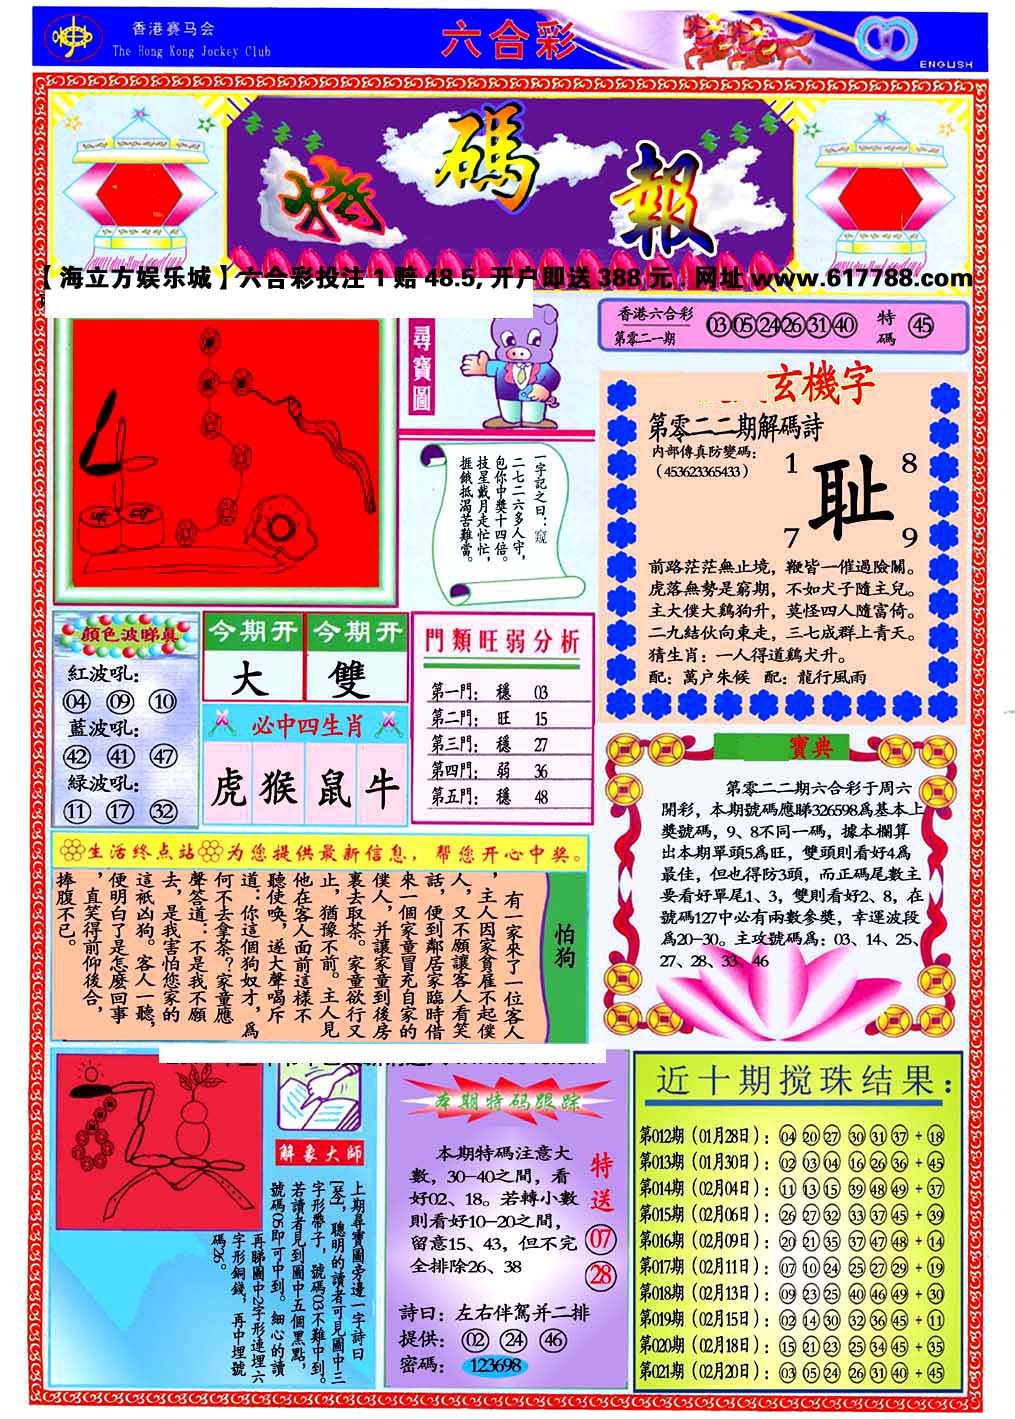 香港赛马会
The Hong Kong Jockey Club
六合彩
ENGLISH
特碼報
【海立方娱乐城】六合彩投注1赔48.5,开户即送388元.网址www.617788.com
尋寶圖
香港六合彩
第零二一期
03 05 24 26 31 40
特碼
45
一字記之曰：窺
二七二六多人守，
包你中獎十四倍。
技星戴月走忙忙，
捱餓抵渴苦難當。
玄機字
第零二二期解碼詩
内部傳真防變碼：
（453623365433）
1 8
耻
7 9
前路茫茫無止境，鞭皆一催過險關。
虎落無勢是窮期，不如犬子隨主兒。
主大僕大鷄狗升，莫怪四人隨富倚。
二九結伙向東走，三七成群上青天。
猜生肖：一人得道鷄犬升。
配：萬户朱候 配：龍行風雨
顔色波睇真
紅波吼：
04 09 10
藍波吼：
42 41 47
緑波吼：
11 17 32
今期开 今期开
大 雙
必中四生肖
虎 猴 鼠 牛
門類旺弱分析
第一門： 穩 03
第二門： 旺 15
第三門： 穩 27
第四門： 弱 36
第五門： 穩 48
寶典
第零二二期六合彩于周六
開彩，本期號碼應睇326598爲基本上
獎號碼，9、8不同一碼，據本欄算
出本期單頭5爲旺，雙頭則看好4爲
最佳，但也得防3頭，而正碼尾數主
要看好單尾1、3，雙則看好2、8，在
號碼127中必有兩數參獎，幸運波段
爲20-30。主攻號碼爲：03、14、25、
27、28、33、46
生活终点站 为您提供最新信息，帮您开心中奖。
怕狗
有一家來了一位客人
，主人因家貧雇不起僕
人，又不願讓客人看笑
話，便到鄰居家臨時借
來一個家童冒充自家的
僕人，并讓家童到後房
裏去取茶。家童欲行又
止，猶豫不前。主人見
他在客人面前這樣不
聽使唤，遂大聲喝斥
道：你這個狗奴才，爲
何不去拿茶？家童應
聲答道：不是我不願
去，是我害怕您家的
這衹凶狗。客人一聽，
便明白了是怎麽回事
，直笑得前仰後合，
捧腹不已。
解象大師
上期尋寶圖旁邊一字詩曰
[琴]，聰明的讀者可見圖中三
字形帶子，號碼03不難中到。
若讀者見到圖中五個黑點，
號碼05即可中到。細心的讀
再睇圖中2字形連埋六
字形銅錢，再中埋號
碼26。
本期特码跟踪
本期特碼注意大
數，30-40之間，看
好02、18。若轉小數
則看好10-20之間，
留意15、43，但不完
全排除26、38
特送
07
28
詩曰：左右伴駕并二排
提供：02 24 46
密碼：123698
近十期搅珠结果：
第012期（01月28日）：04 20 27 30 31 37 + 18
第013期（01月30日）：02 03 04 16 26 36 + 45
第014期（02月04日）：11 13 15 39 48 49 + 37
第015期（02月06日）：26 27 32 33 37 45 + 39
第016期（02月09日）：20 21 35 37 47 48 + 14
第017期（02月11日）：07 10 24 25 27 29 + 19
第018期（02月13日）：09 23 25 40 46 49 + 30
第019期（02月15日）：02 14 30 32 36 45 + 11
第020期（02月18日）：15 21 23 25 34 45 + 35
第021期（02月20日）：03 05 24 26 31 40 + 45